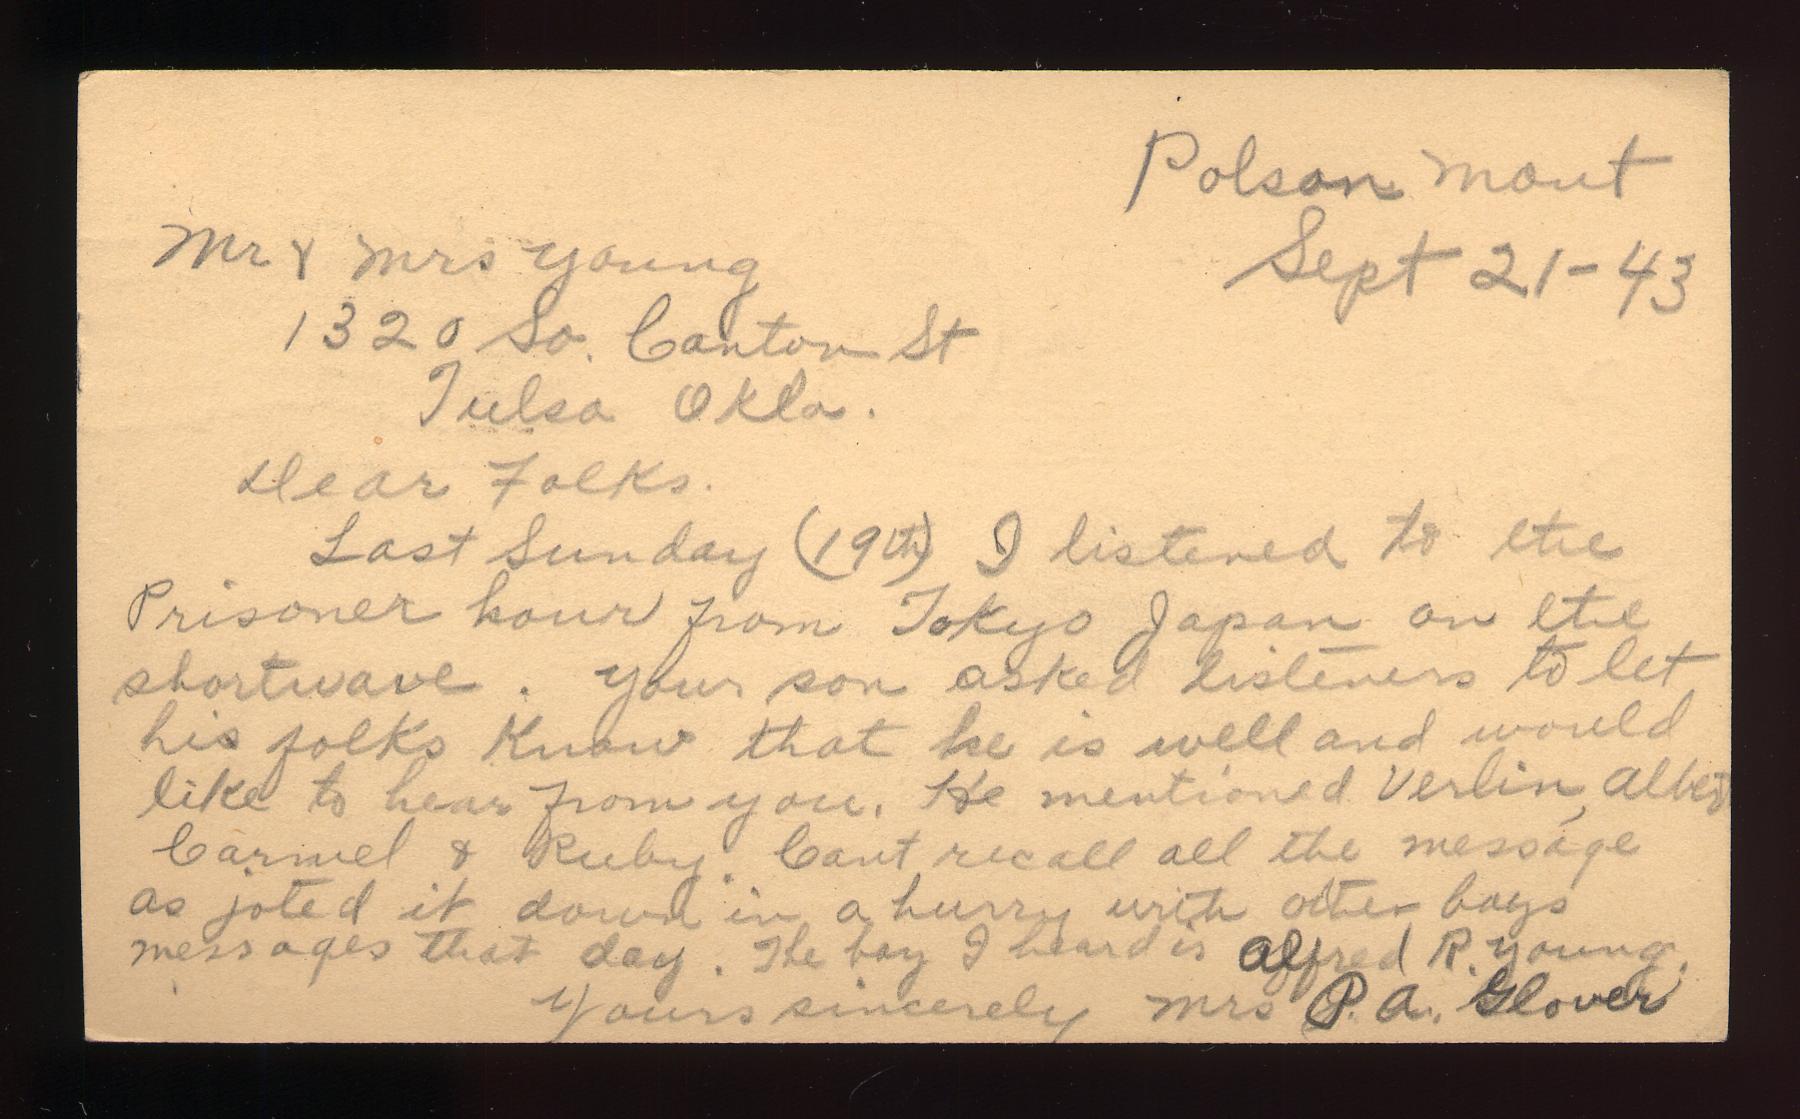 Polson Mont
Sept 21-43
Mr & Mrs Young
1320 So. Canton St
Tulsa Okla.
Dear Folks.
Last Sunday (19th) I listened to the
Prisoner hour from Tokyo Japan on the
shortwave. Your son asked listeners to let
his folks know that he is well and would
like to hear from you. He mentioned Verlin, Albert
Carmel & Ruby. Cant recall all the message
as joted it down in a hurry with other boys
messages that day. The boy I heard is Alfred R. Young.
Yours sincerely Mrs P. A. Glover